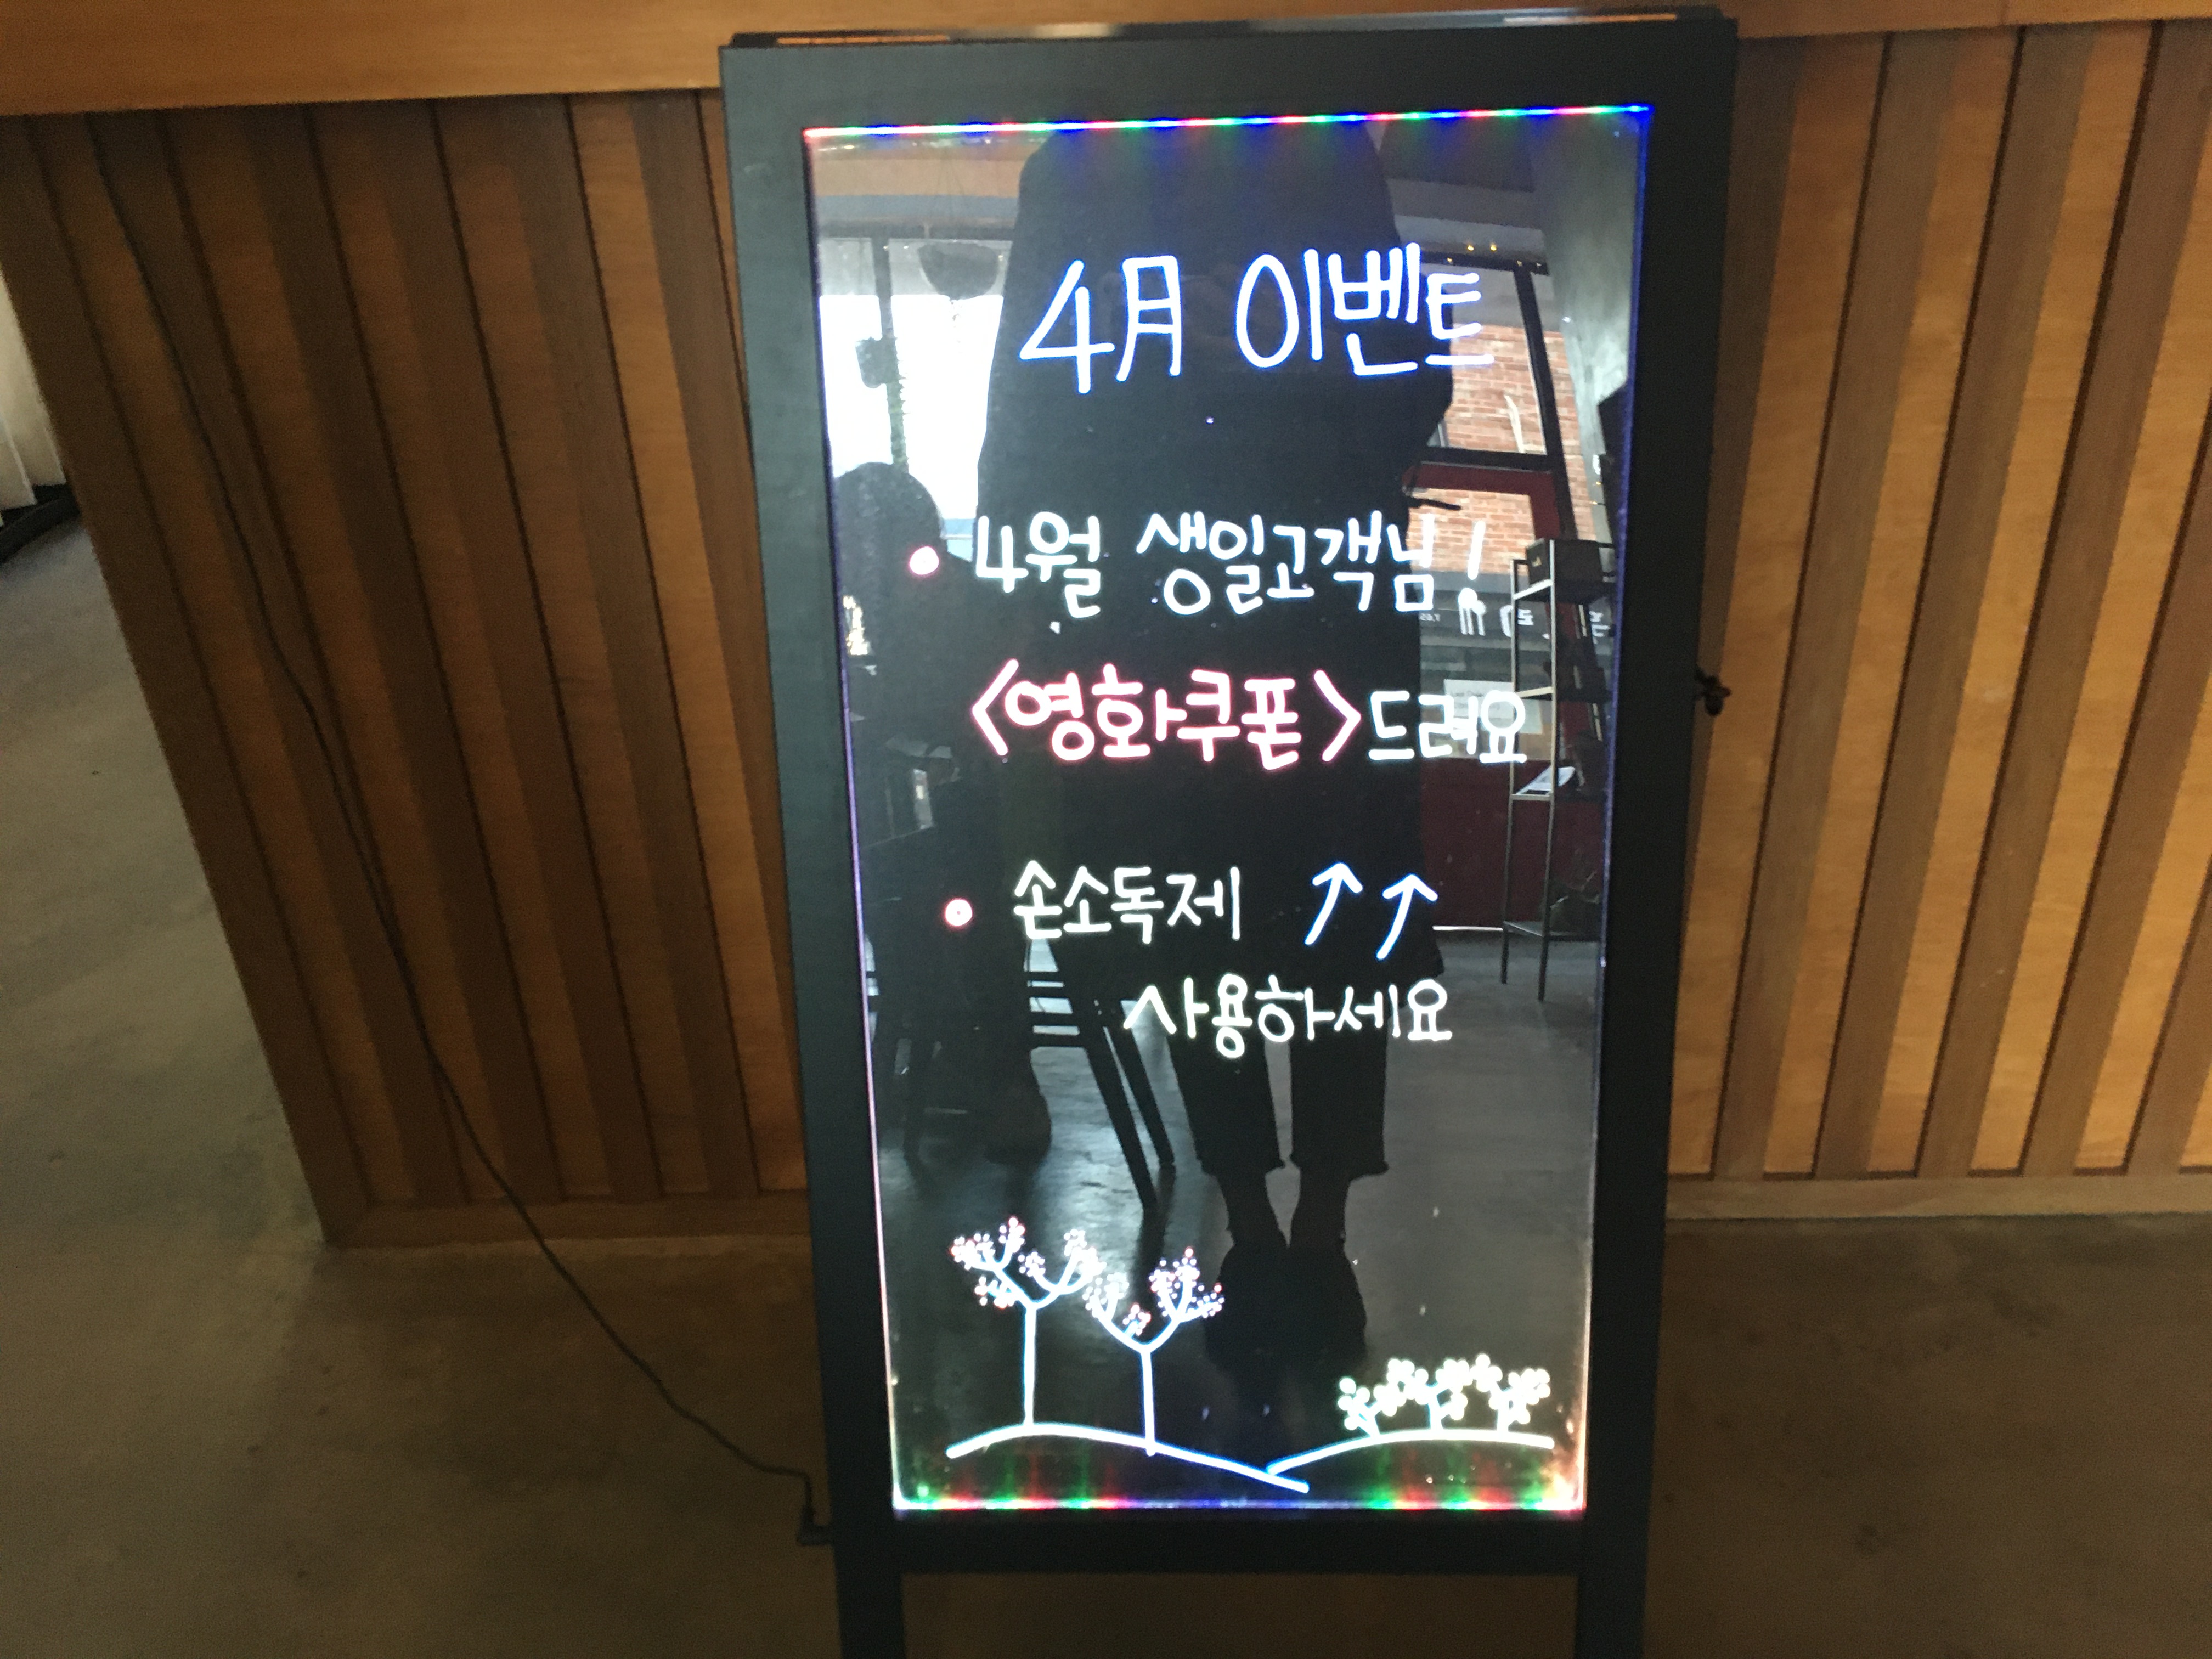 4月 이벤트
• 4월 생일고객님!
<영화쿠폰>드려요
• 손소독제 ↑↑
사용하세요